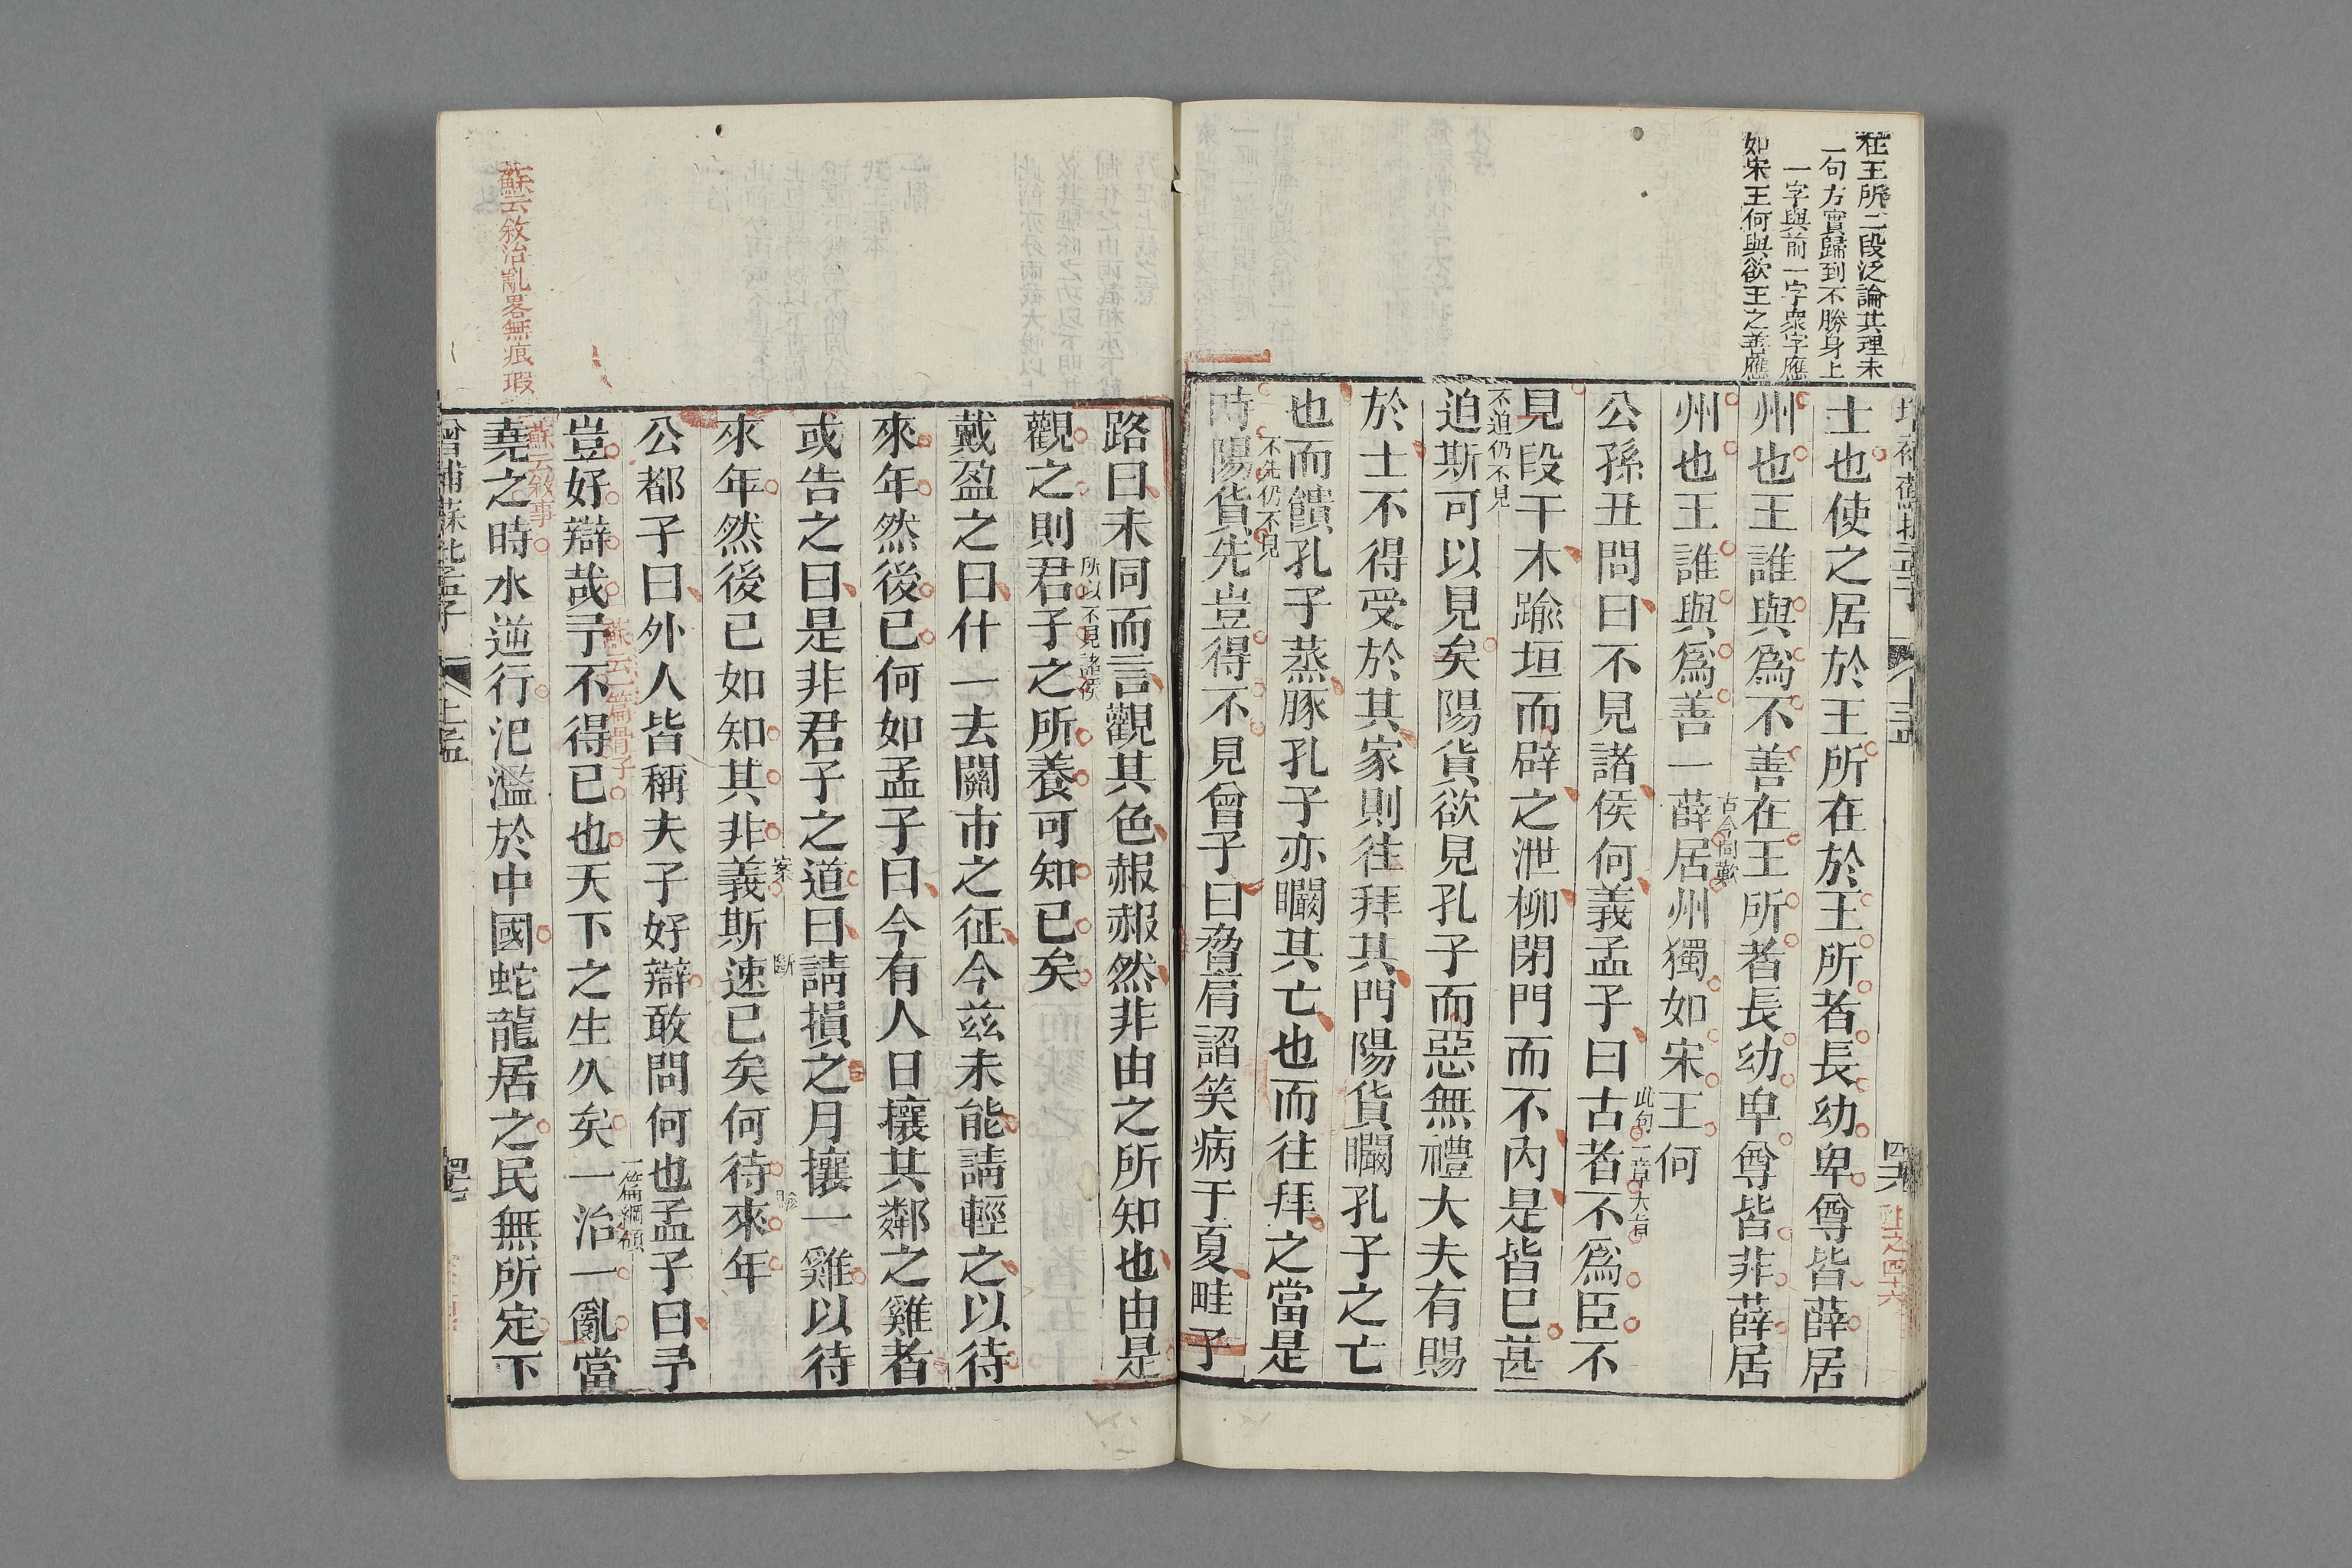 在王所二段泛論其理未
一句方實歸到不勝身上
一字與前一字衆字應
如宋王何與欲王之善應
士也使之居於王所在於王所者長幼卑尊皆薛居
州也王誰與爲不善在王所者長幼卑尊皆非薛居
古今同歎
州也王誰與爲善一薛居州獨如宋王何
此句一章大旨
公孫丑問曰不見諸侯何義孟子曰古者不爲臣不
見段干木踰垣而辟之泄柳閉門而不內是皆已甚
不迫仍不見
迫斯可以見矣陽貨欲見孔子而惡無禮大夫有賜
於士不得受於其家則往拜其門陽貨矙孔子之亡
也而饋孔子蒸豚孔子亦矙其亡也而往拜之當是
不先仍不見
時陽貨先豈得不見曾子曰脅肩諂笑病于夏畦子
路曰未同而言觀其色赧赧然非由之所知也由是
所以不見諸侯
觀之則君子之所養可知已矣
戴盈之曰什一去關市之征今茲未能請輕之以待
來年然後已何如孟子曰今有人日攘其鄰之雞者
或告之曰是非君子之道曰請損之月攘一雞以待
案 斷
來年然後已如知其非義斯速已矣何待來年
公都子曰外人皆稱夫子好辯敢問何也孟子曰予
蘇云一篇骨子
一篇綱領
豈好辯哉予不得已也天下之生久矣一治一亂當
蘇云敘治亂畧無痕瑕
蘇云敘事
堯之時水逆行氾濫於中國蛇龍居之民無所定下
增補蘇批孟子 上孟